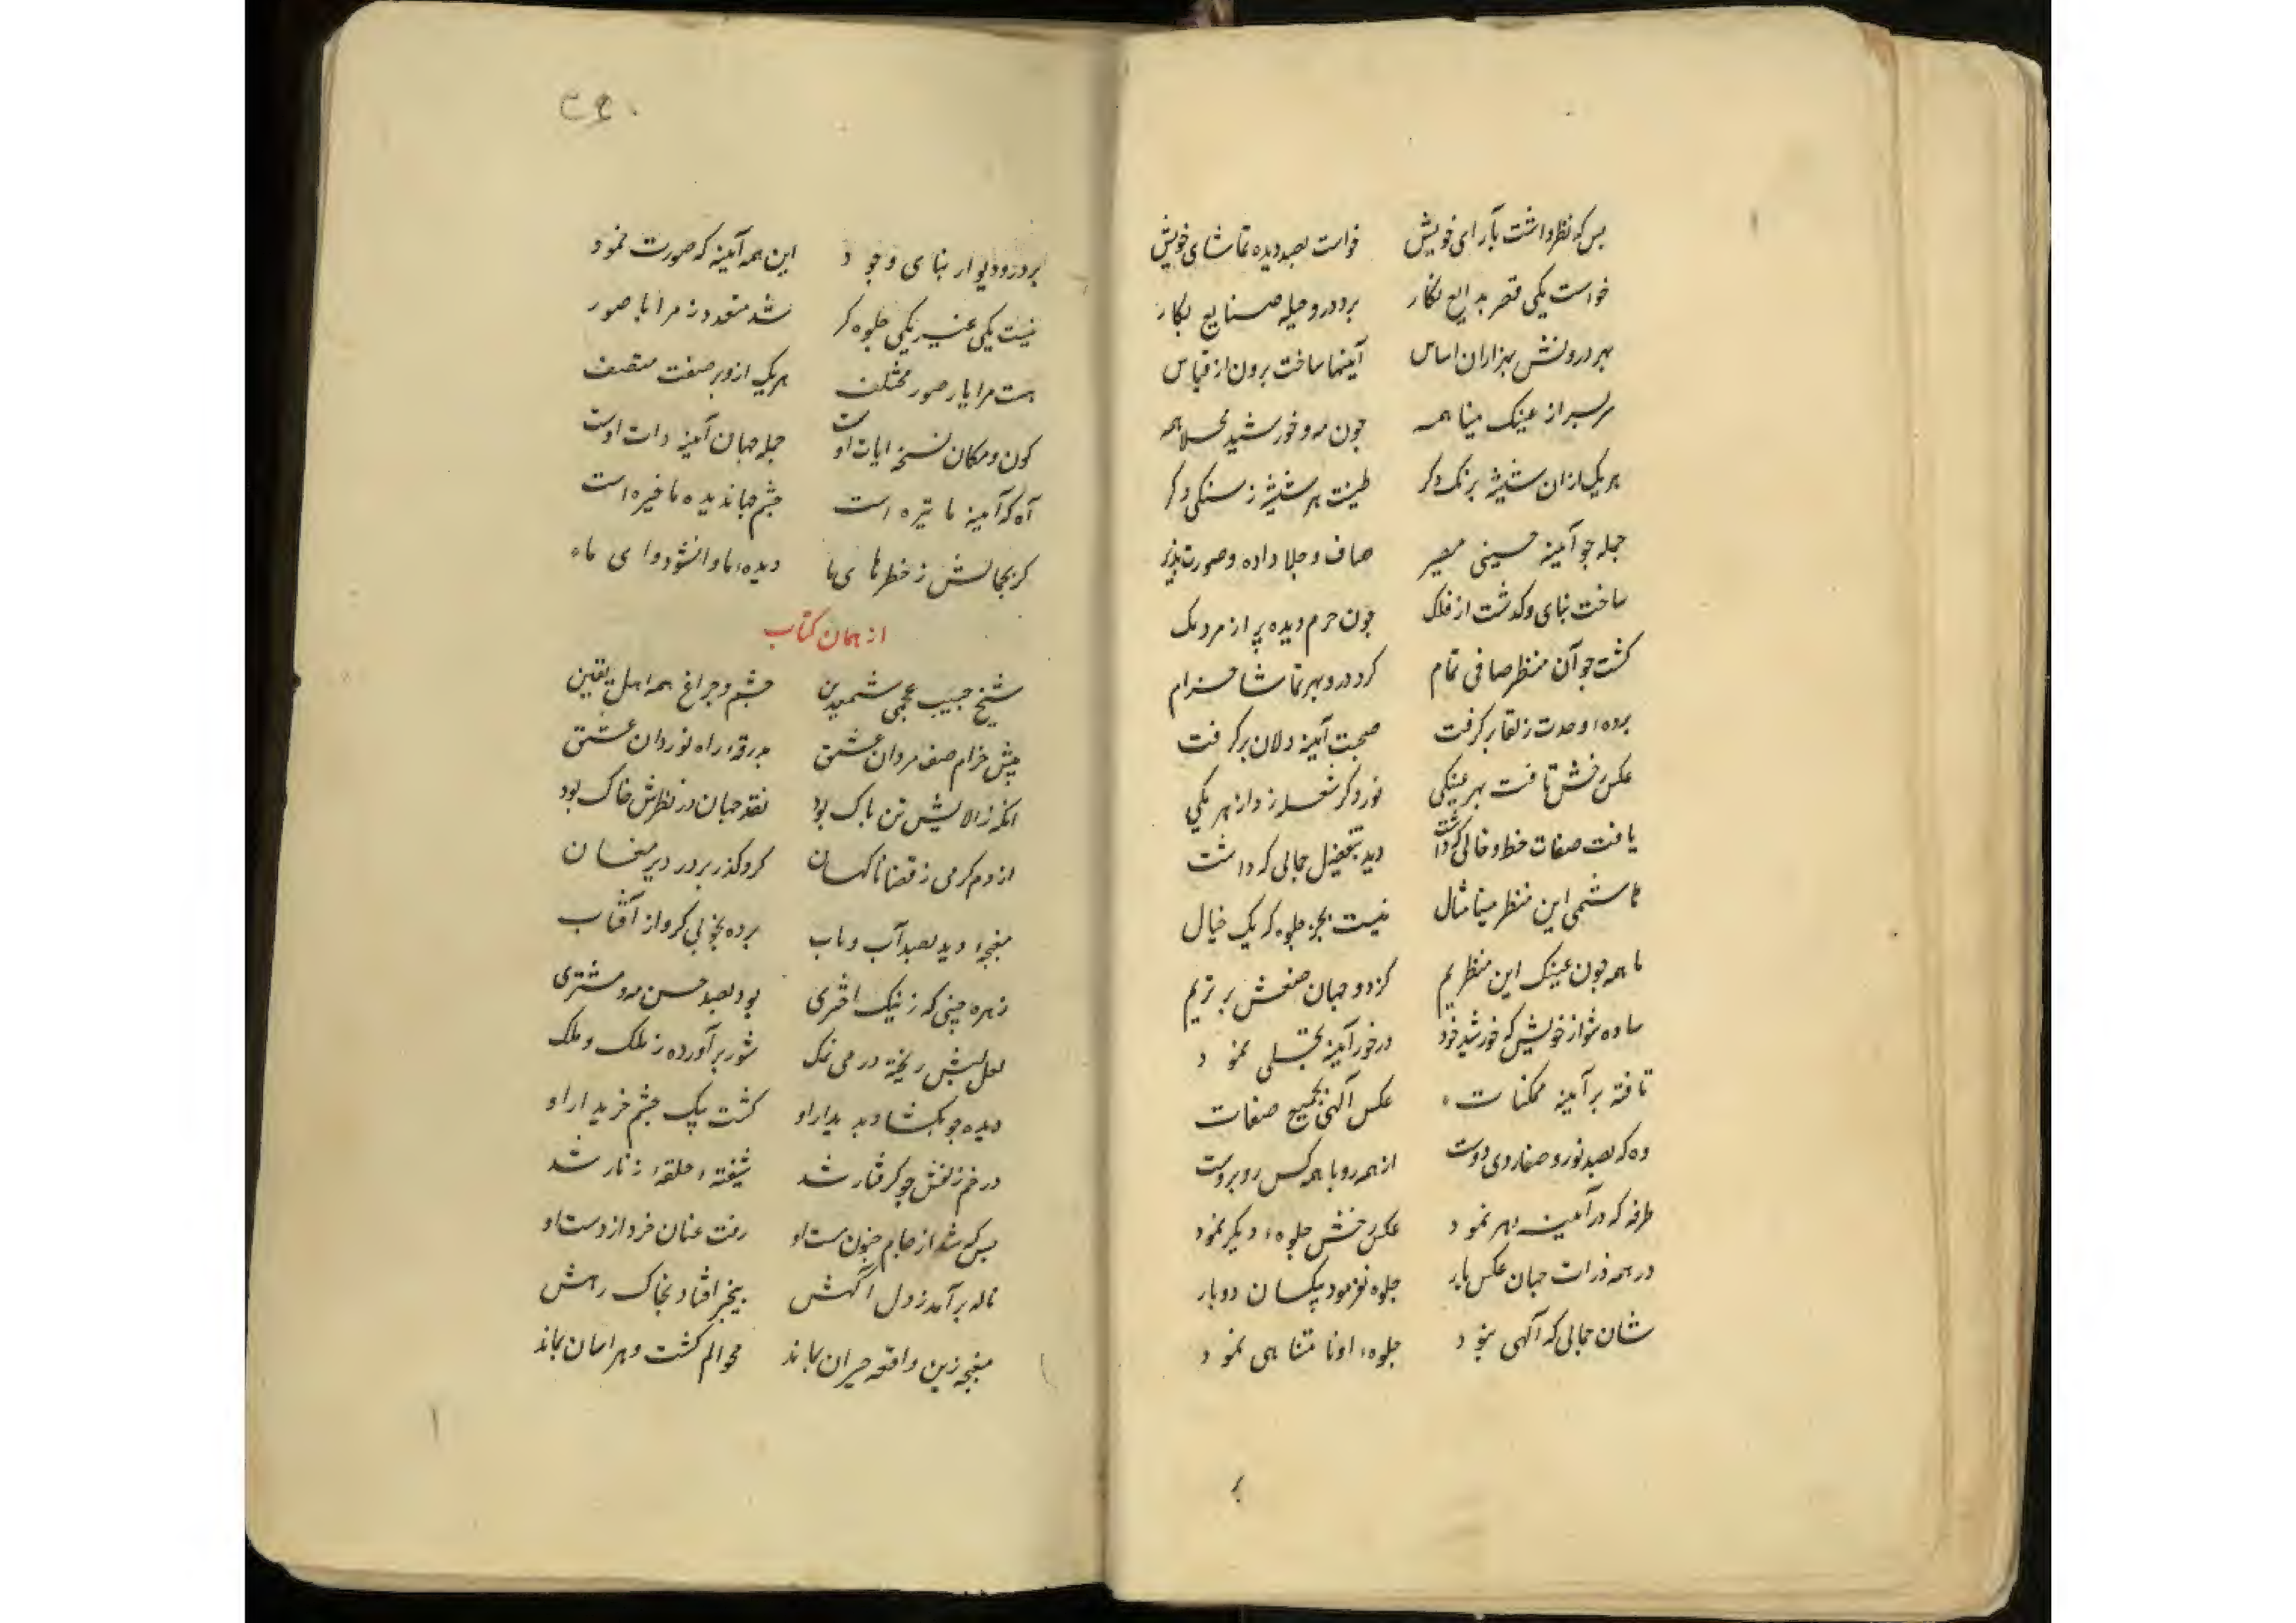 بس که نظر داشت بآرای خویش خواست بصد دیده تماشای خویش
خواست یکی قصر بدایع نگار بر در و حیله صنایع بکار
بهر درونش بهزاران اساس آینها ساخت برون از قیاس
سربسر از عینک مینا همه چون مه و خورشید مجلا همه
هر یک ازان شیشه برنگ دکر طینت هر شیشه ز سنکی دکر
جمله چو آینه حسینی صاف و جلا داده و صورت پذیر
ساخت بنای و کذشت از فلک چون حرم دیده پر از مردمک
کشت چو آن منظر صافی تمام کرد درو بهر تماشا خرام
برده وحدت ز لقا بر کرفت صحبت آینه دلان بر کرفت
عکس رخش تافت بهر عینکی نور دکر شعله زد از هر یکی
یافت صفات خط و خالی که داشت دید بتفصیل جمالی که داشت
این منظر مینا مثال نیست بجز جلوه که یک خیال
ما همه چون عینک این منظریم کز دو جهان صنعش برتریم
ساده شو از خویش که خورشید خود در خور آینه تجلی نمود
تافته بر آینه ممکنات عکس آلهی بجمیع صفات
وه که بصد نور و صفا روی دوست از همه رو با همه کس روبروست
طرفه که در آینه بهر نمود عکس رخش جلوهٔ دیکر نمود
در همه ذرات جهان عکس یار جلوه نفرمود یکسان دو بار
شان جمالی که آلهی بود جلوهٔ او نامتناهی نمود
بر
۳۴۰
بر در و دیوار بنای وجود این همه آینه که صورت نمود
نیست یکی غیر یکی جلوه کر شد متعدد ز مرایا صور
هست مرایا ز صور مختلف هر یک ازو بر صفت متصف
کون و مکان نسخه ایات اوست جمله جهان آینه ذات اوست
آه که آینه ما تیره است چشم جهاندیده ما خیره است
کر بجمالش ز خطرهای ما دیدهٔ ما وانشود وای ما
از همان کتاب
شیخ حبیب عجمی شمع دین چشم و چراغ همه اهل یقین
پیش خرام صف مردان عشق بدرقهٔ راه نوردان عشق
انکه ز الایش تن پاک بود نقد جهان در نظرش خاک بود
از دم کرمی ز قضا ناکهان کرد کذر بر در دیر مغان
مغبچهٔ دید بصد آب و تاب برده بخوبی کرو از آفتاب
زهره جبینی که ز نیک اختری بود بصد حسن مه و مشتری
لعل لبش ریخته در می نمک شور برآورده ز ملک و ملک
دیده چو بکشاد بدیدار او کشت بیک چشم خریدار او
در خم زلفش چو کرفتار شد شیفتهٔ حلقهٔ زنار شد
بس که شد از جام جنون مست او رفت عنان خرد از دست او
ناله برآمد ز دل آکهش بیخبر افتاد بخاک رهش
مغبچه زین واقعه حیران بماند محو الم کشت و هراسان بماند